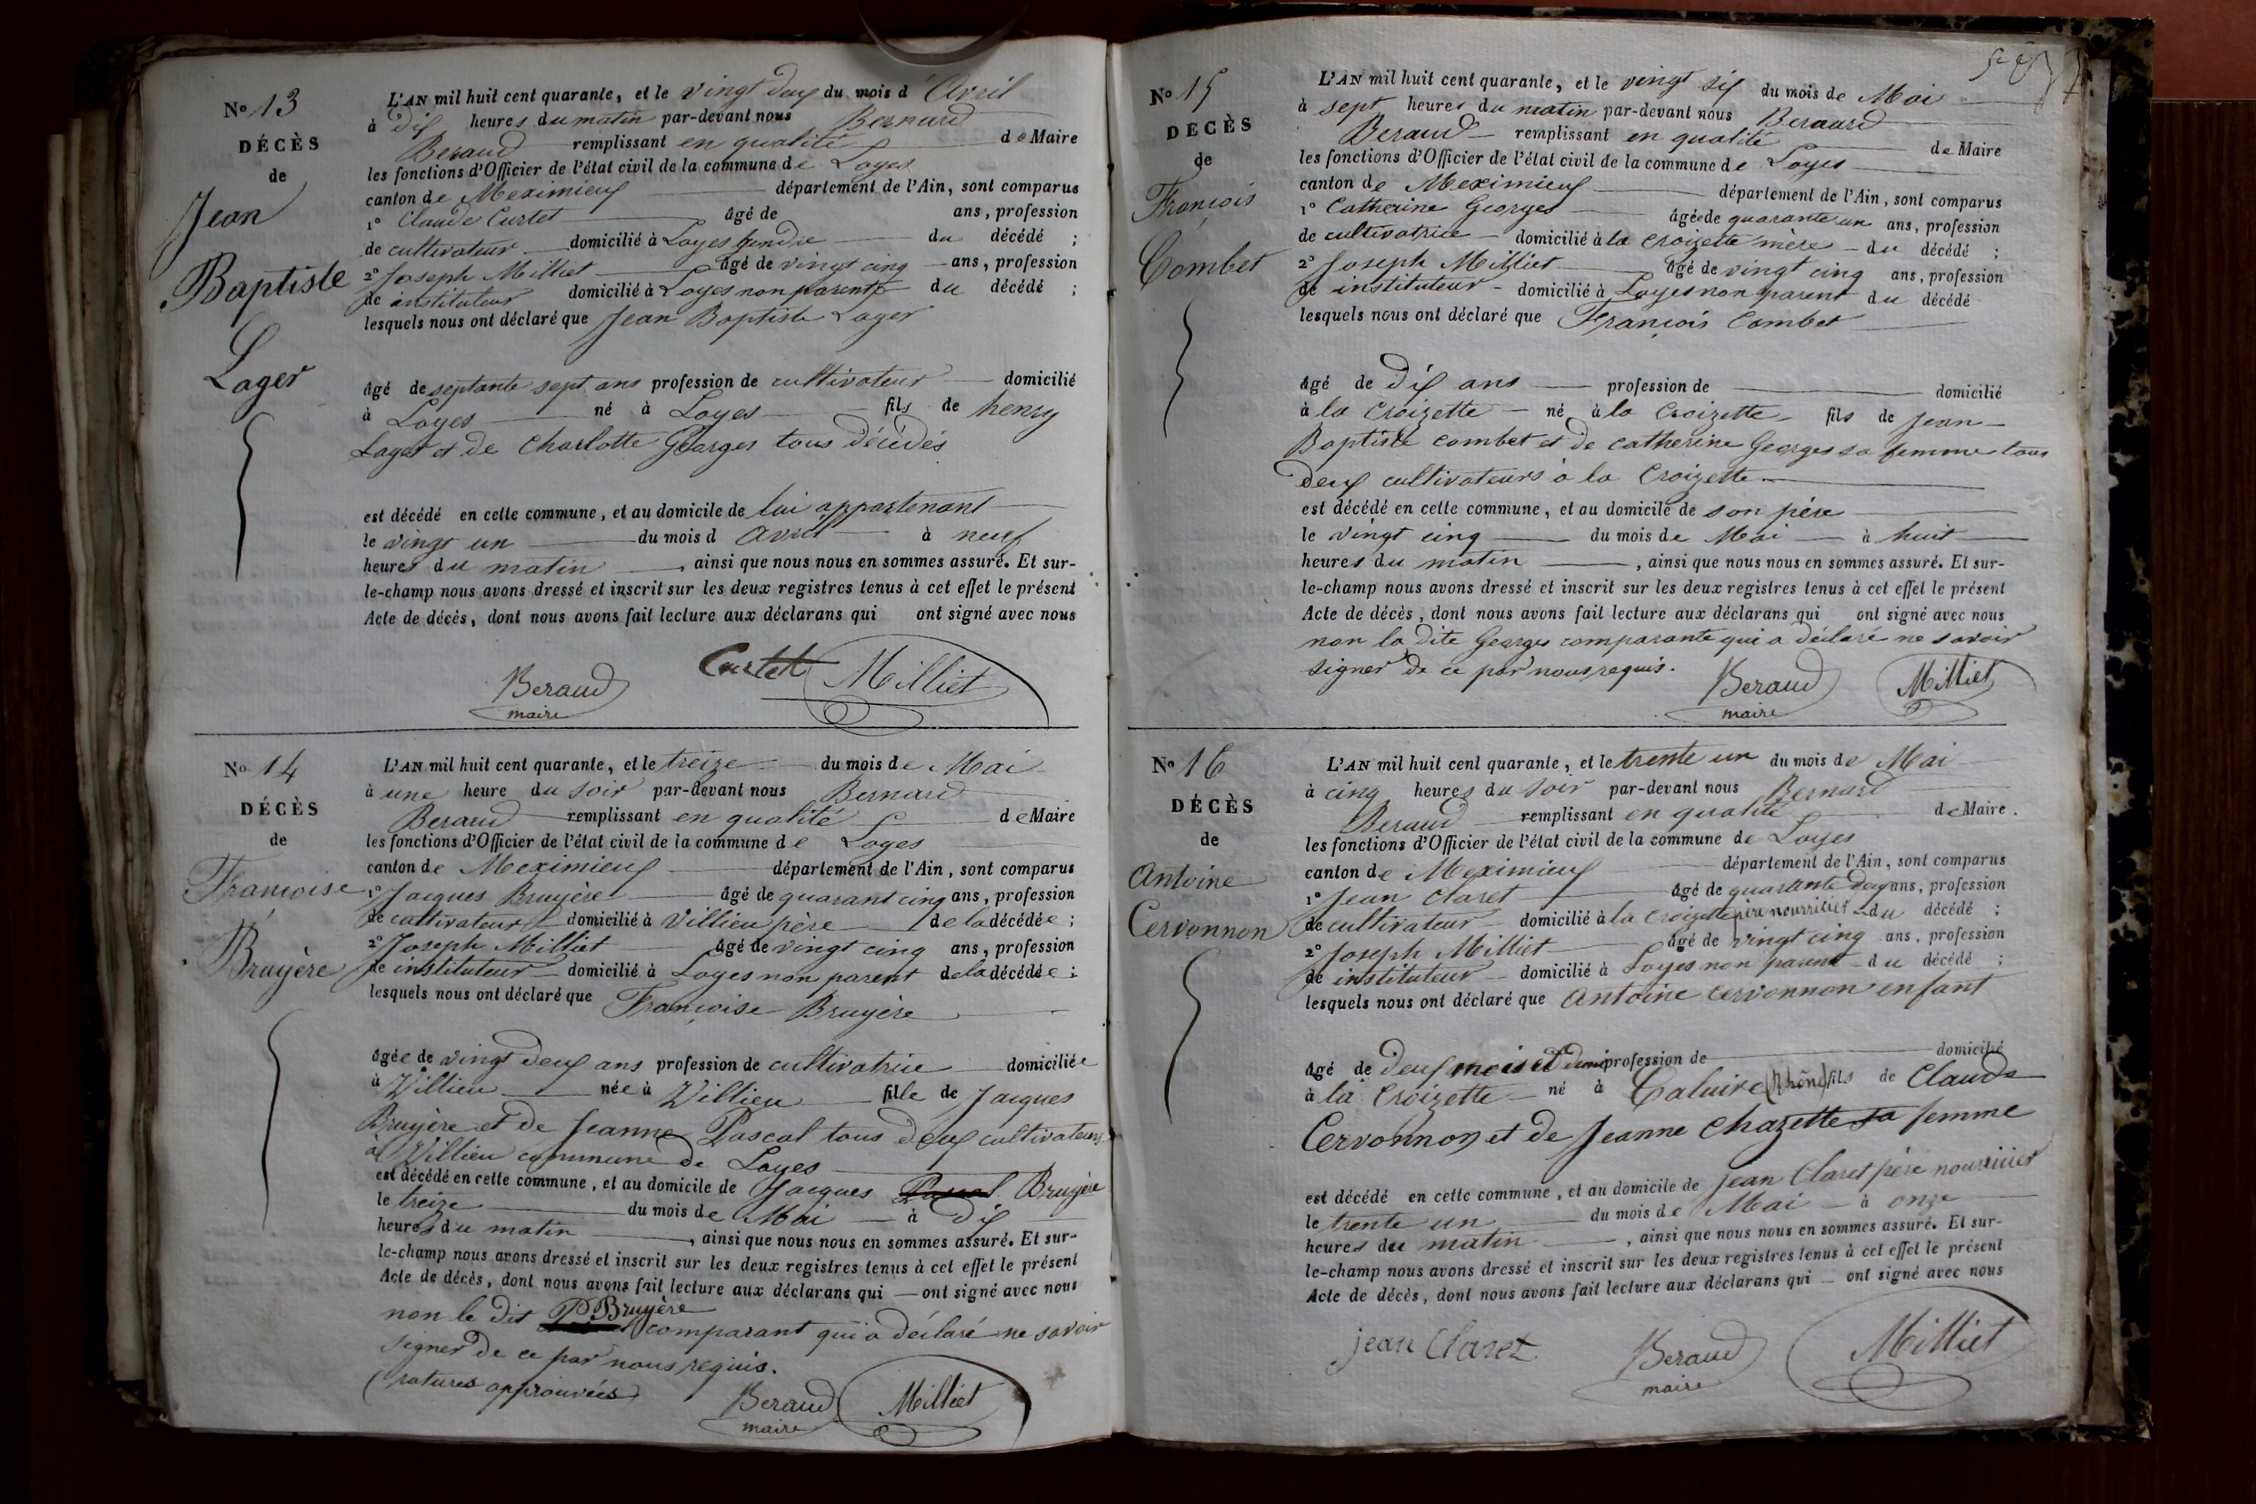 No 13
DÉCÈS
de
Jean
Baptiste
Lager
L'AN mil huit cent quarante, et le vingt deux du mois d'Avril
à dix heures du matin par-devant nous Bernard
Beraud remplissant en qualité de Maire
les fonctions d'Officier de l'état civil de la commune de Loyes
canton de Meximieux département de l'Ain, sont comparus
1° Claude Curtet âgé de ans, profession
de cultivateur domicilié à Loyes gendre du décédé ;
2° Joseph Milliet âgé de vingt cinq ans, profession
de instituteur domicilié à Loyes non parente du décédé ;
lesquels nous ont déclaré que Jean Baptiste Lager
âgé de septante sept ans profession de cultivateur domicilié
à Loyes né à Loyes fils de henry
Lager et de Charlotte Georges tous décédés
est décédé en cette commune, et au domicile de lui appartenant
le vingt un du mois d avril à neuf
heures du matin, ainsi que nous nous en sommes assuré. Et sur-
le-champ nous avons dressé et inscrit sur les deux registres tenus à cet effet le présent
Acte de décès, dont nous avons fait lecture aux déclarans qui ont signé avec nous
Curtet Milliet
Beraud
maire
No 14
DÉCÈS
de
Françoise
Bruyère
L'AN mil huit cent quarante, et le treize du mois de Mai
à une heure du soir par-devant nous Bernard
Beraud remplissant en qualité de Maire
les fonctions d'Officier de l'état civil de la commune de Loyes
canton de Meximieux département de l'Ain, sont comparus
1° Jacques Bruyère âgé de quarant cinq ans, profession
de cultivateur domicilié à Villieu père de la décédée ;
2° Joseph Milliet âgé de vingt cinq ans, profession
de instituteur domicilié à Loyes non parent de la décédée ;
lesquels nous ont déclaré que Françoise Bruyère
âgée de vingt deux ans profession de cultivatrice domiciliée
à Villieu née à Villieu fille de Jacques
Bruyère et de Jeanne Pascal tous deux cultivateurs
à Villieu commune de Loyes
est décédé en cette commune, et au domicile de Jacques Pascal Bruyère
le treize du mois de Mai à dix
heures du matin, ainsi que nous nous en sommes assuré. Et sur-
le-champ nous avons dressé et inscrit sur les deux registres tenus à cet effet le présent
Acte de décès, dont nous avons fait lecture aux déclarans qui ont signé avec nous
non le dit Bruyère comparant qui a déclaré ne savoir
signer de ce par nous requis.
(ratures approuvées)
Beraud Milliet
maire
No 15
DÉCÈS
de
François
Combet
L'AN mil huit cent quarante, et le vingt six du mois de Mai
à sept heures du matin par-devant nous Bernard
Beraud remplissant en qualité de Maire
les fonctions d'Officier de l'état civil de la commune de Loyes
canton de Meximieux département de l'Ain, sont comparus
1° Catherine Georges âgée de quarante un ans, profession
de cultivatrice domicilié à la Croizette mère du décédé ;
2° Joseph Milliet âgé de vingt cinq ans, profession
de instituteur domicilié à Loyes non parent du décédé
lesquels nous ont déclaré que François Combet
âgé de dix ans profession de domicilié
à la Croizette né à la Croizette fils de Jean
Baptiste Combet et de Catherine Georges sa femme tous
deux cultivateurs à la Croizette
est décédé en cette commune, et au domicile de son père
le vingt cinq du mois de Mai à huit
heures du matin, ainsi que nous nous en sommes assuré. Et sur-
le-champ nous avons dressé et inscrit sur les deux registres tenus à cet effet le présent
Acte de décès, dont nous avons fait lecture aux déclarans qui ont signé avec nous
non la dite Georges comparante qui a déclaré ne savoir
signer de ce par nous requis.
Beraud Milliet
maire
No 16
DÉCÈS
de
Antoine
Cervonnon
L'AN mil huit cent quarante, et le trente un du mois de Mai
à cinq heures du soir par-devant nous Bernard
Beraud remplissant en qualité de Maire.
les fonctions d'Officier de l'état civil de la commune de Loyes
canton de Meximieux département de l'Ain, sont comparus
1° Jean Claret âgé de quarante deux ans, profession
de cultivateur domicilié à la Croizette père nourricier du décédé ;
2° Joseph Milliet âgé de vingt cinq ans, profession
de instituteur domicilié à Loyes non parent du décédé ;
lesquels nous ont déclaré que Antoine Cervonnon enfant
âgé de deux mois et demi profession de domicilié
à la Croizette né à Caluire (Rhône) fils de Claude
Cervonnon et de Jeanne Chazette sa femme
est décédé en cette commune, et au domicile de Jean Claret père nourricier
le trente un du mois de Mai à onze
heures du matin, ainsi que nous nous en sommes assuré. Et sur-
le-champ nous avons dressé et inscrit sur les deux registres tenus à cet effet le présent
Acte de décès, dont nous avons fait lecture aux déclarans qui ont signé avec nous
jean Claret Beraud Milliet
maire